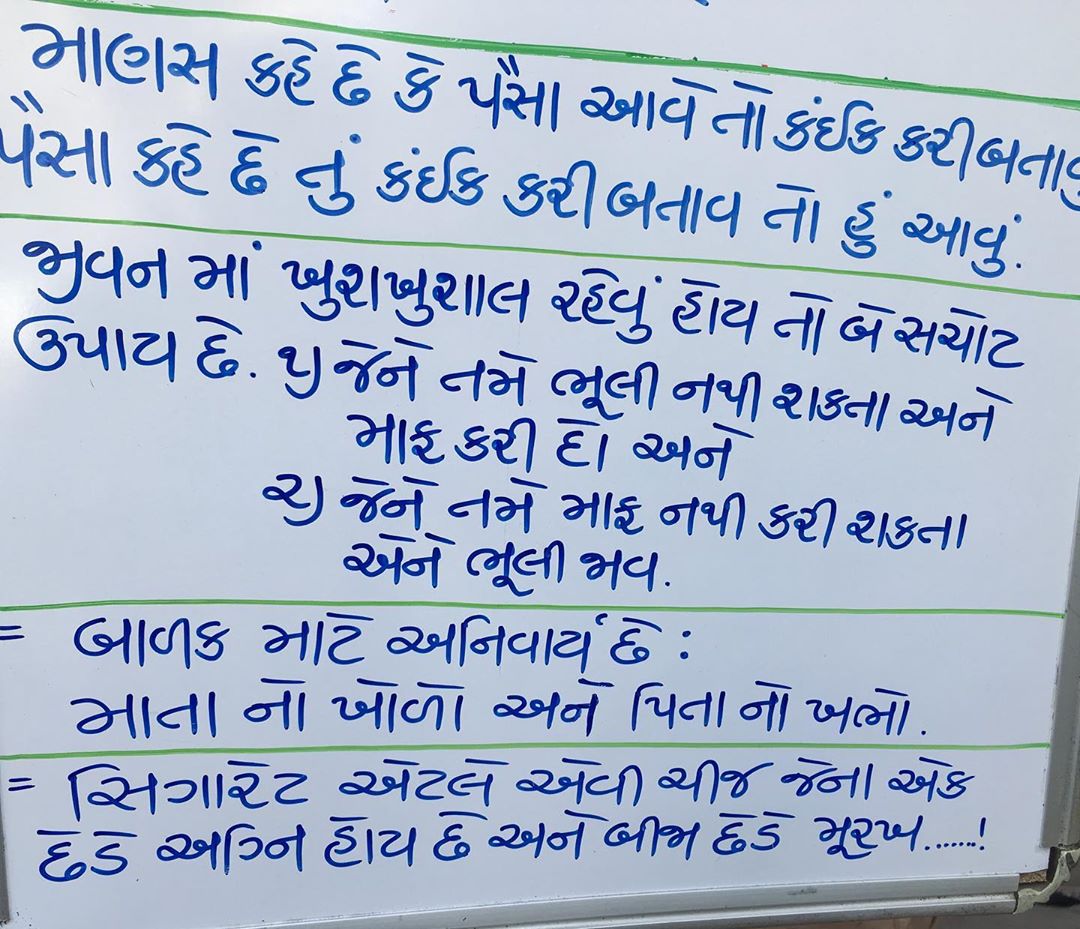 માણસ કહે છે કે પૈસા આવે તો કંઈક કરી બતાવુ
પૈસા કહે છે તું કંઈક કરી બતાવ તો હું આવું.
જીવન માં ખુશખુશાલ રહેવું હોય તો બે સચોટ
ઉપાય છે. ૧) જેને તમે ભૂલી નથી શકતા અને
માફ કરી દો અને
૨) જેને તમે માફ નથી કરી શકતા
એને ભૂલી જાવ.
= બાળક માટે અનિવાર્ય છે :
માતા નો ખોળો અને પિતા નો ખભો.
= સિગારેટ એટલે એવી ચીજ જેના એક
છેડે અગ્નિ હોય છે અને બીજા છેડે મૂરખ.......!